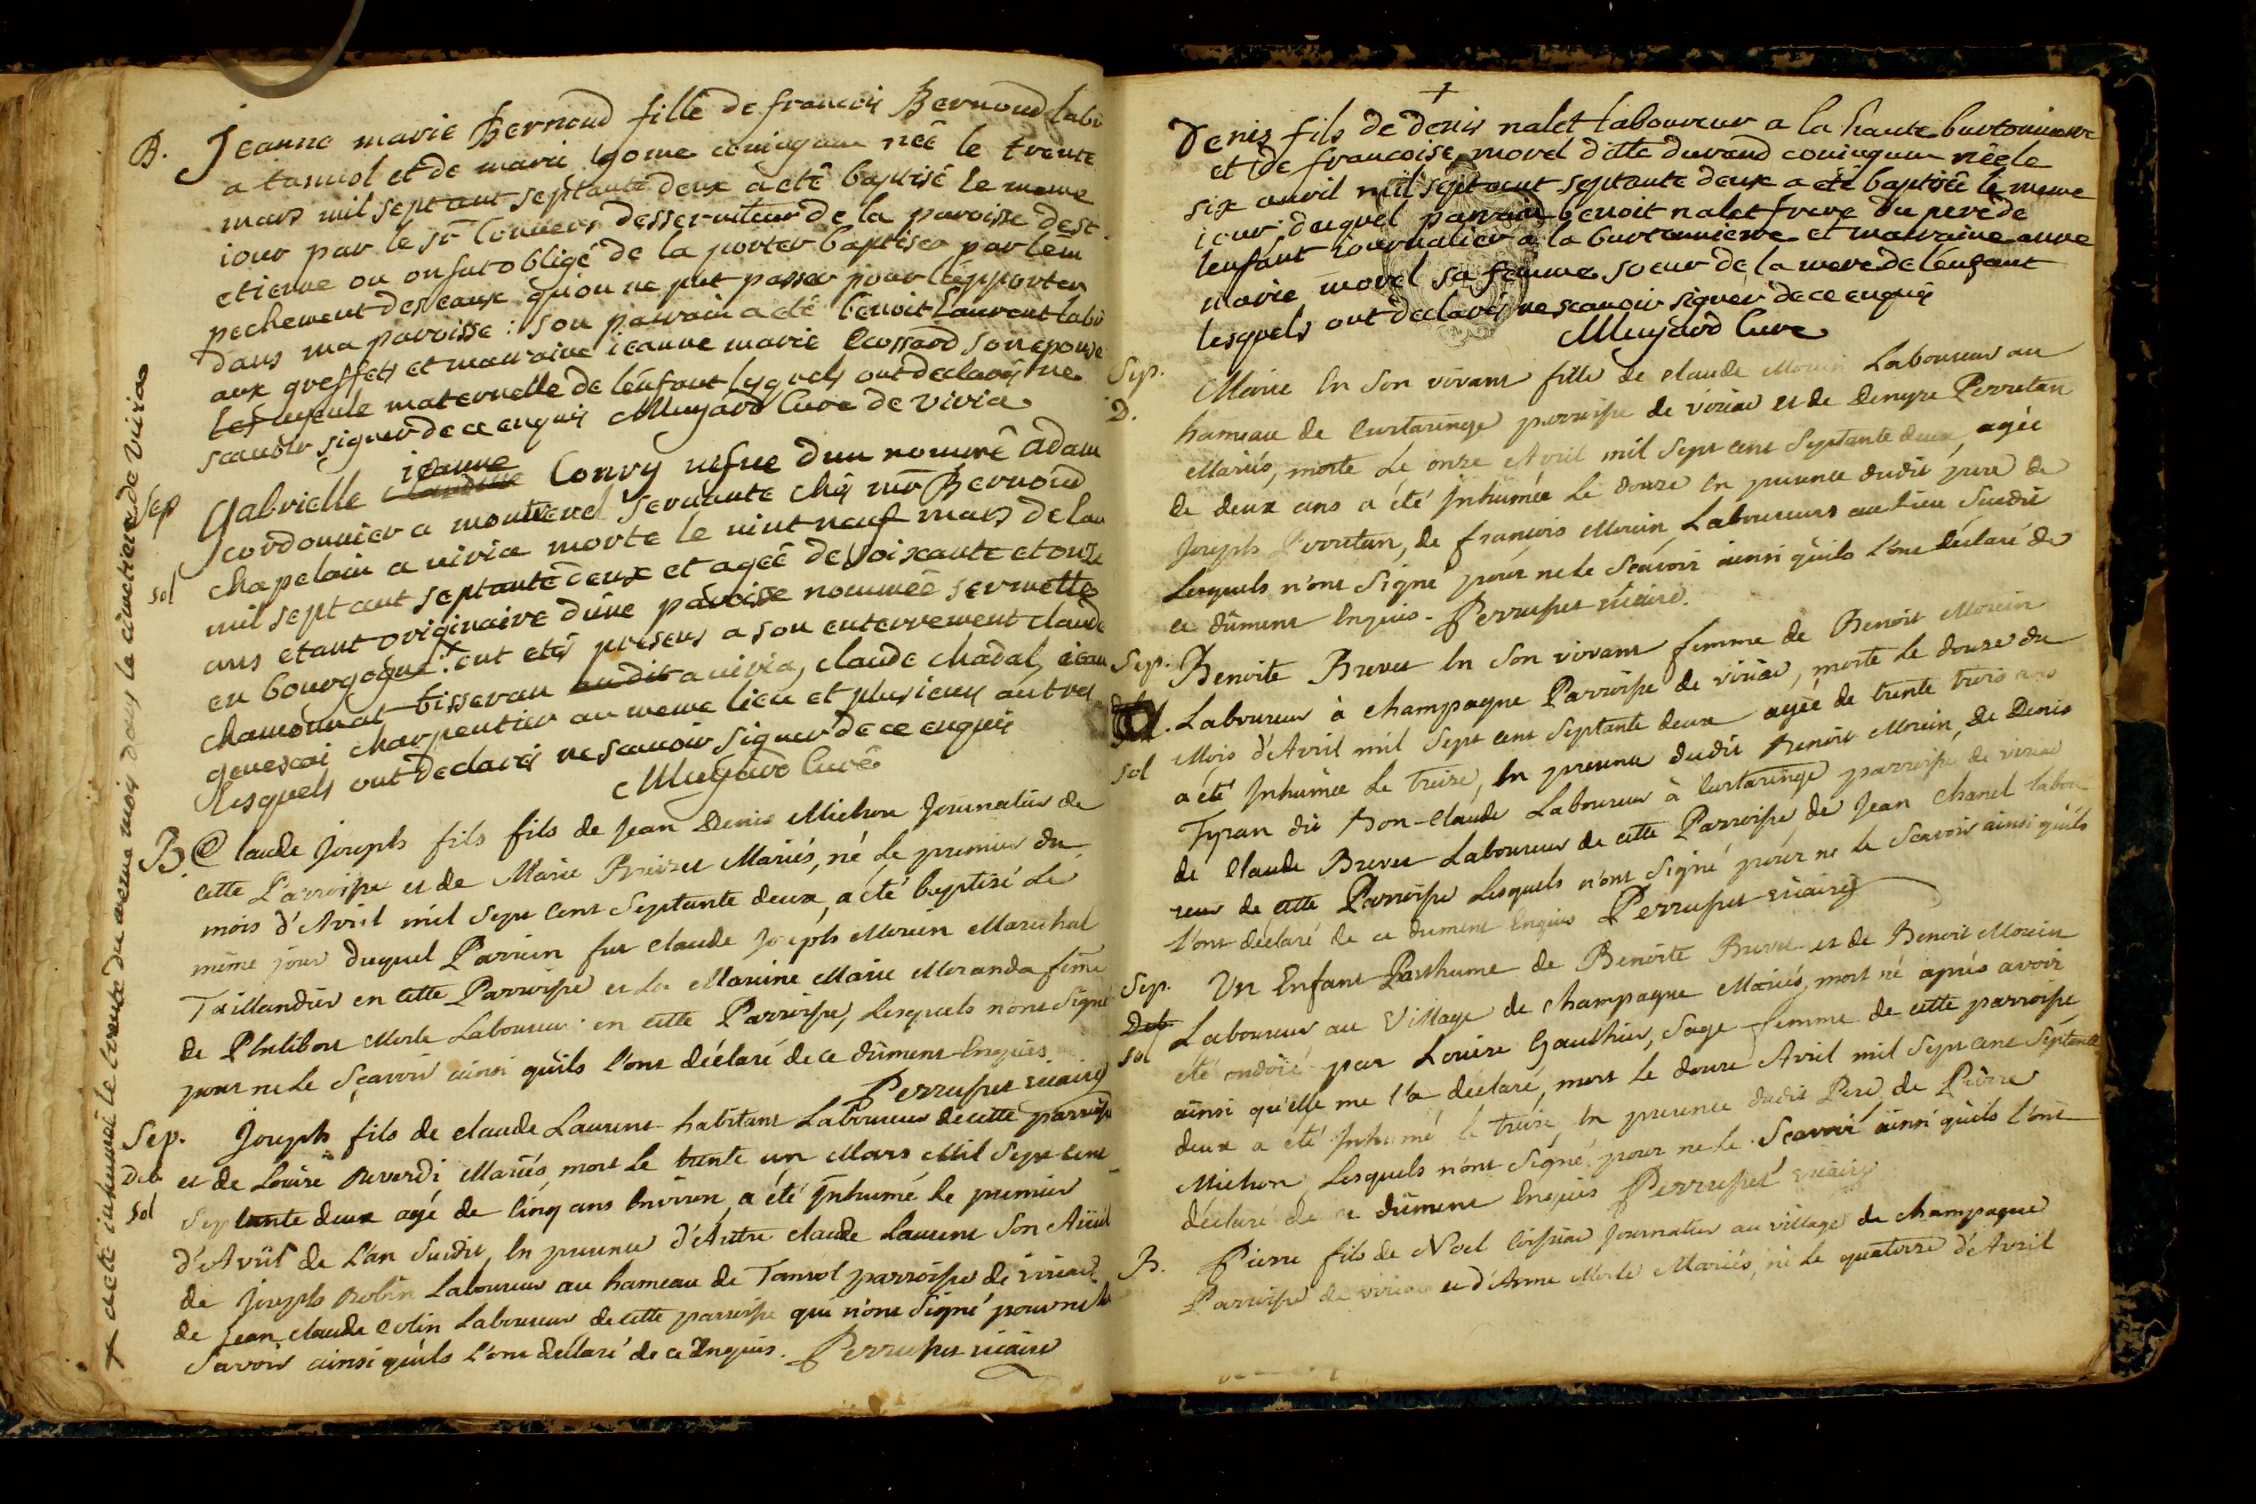 B. Jeanne marie Bernoud fille de francois Bernoud labo
a tanuol et de marie gome coniugau née le trente
mars mil sept cent septante deux a etê baptisê le meme
iour par le sr Convers desseruiteur de la paroisse de st
etienne ou on fut obligé de la porter baptiser par lem
pechement des eaux qu'on ne put passer pour l'epporter
dans ma paroisse : son parrain a etê benoit Laurent labo
aux greffets et marraine ieanne marie Ecossard son epouse
ayeule maternelle de lénfant lesquels ont declarés ne
scauoir signer de ce enquis Mugard Cure de viria
ieanne
Sep Gabrielle Convy vefue d'un nommê adam
cordonnier a montrevel servante chés mr Bernoud
sol chapelain a viria morte le vint neuf mars de lan
mil sept cent septante deux et ageê de soixante et onze
ans etant originaire d'une paroisse nommeê sermettes
en bourgogne. x ont etés presens a son enterrement claude
chamounal tisseran au dit a uiria, claude chadal, iean
charpentier au meme lieu et plusieurs autres
lesquels ont declarés ne scauoir signer de ce enquis
Mugard Curê
x a etê inhumeê le trente du meme mois dans le cimetiere de viria
B. Claude Joseph fils fils de Jean Denis Michon Journalier de
cette Parroisse et de Marie Brevet Mariés, né le premier du
mois d'Avril mil sept cent Septante deux, a été baptisé le
même jour duquel Parrein fut Claude Joseph Morein Marechal
Taillandier en cette Parroisse et la Mareine Marie Moranda feme
de Philibert Merle Laboureur en cette Parroisse, Lesquels n'ont Signé
pour ne le Sçavoir ainsi qu'ils l'ont déclaré de ce dûment Enquis
Perruset vicaire
Sep. Joseph fils de claude Laurent habitant Laboureur de cette parroisse
Deb et de Louise Reverdi Mariés, mort le trente un Mars Mil Sept cent
sol Septante deux agé de Cinq ans Environ, a été Inhumé le premier
d'Avril de L'an Susdit, En presence d'Autre claude Laurent Son Aïeul
de Joseph Robin Laboureur au hameau de Tanvol parroisse de viriac
de Jean claude Colin Laboureur de cette parroisse qui n'ont Signé pour ne le
Savoir ainsi qu'ils L'ont déclaré de ce Enquis. Perruset vicaire
+
Denis fils de denis nalet laboureur a la haute burtonniere
et de francoise morel dite durand coniugau nêe le
six auril mil sept cent septante deux a etê baptisêe le meme
iour, duquel parrain benoit nalet frere du pere de
lenfant iournalier a la burtonniere et marraine anne
marie morel sa femme soeur de la mere de lénfant
lesquels ont declarés ne scauoir signer de ce enquis
Mugard Cure
Sep. Marie En Son vivant fille de claude Morein Laboureur au
D. hameau de Curtaringe parroisse de viriac et de Denyse Perretan
Mariés, morte Le onze Avril mil Sept cent Septante deux, agée
de deux ans a été Inhumée Le douze En presence dudit pere de
Joseph Perretan, de françois Morein Laboureurs au Lieu Susdit
Lesquels n'ont Signé pour ne le Sçavoir ainsi qu'ils L'ont déclaré de
ce dûment Enquis. Perruset vicaire.
Sep. Benoite Brevet En Son vivant femme de Benoit Morein
Laboureur à Champagne Parroisse de viriac, morte Le douze du
sol Mois d'Avril mil Sept cent Septante deux agée de trente trois ans
a été Inhumée Le treize, En presence dudit Benoit Morein, de Denis
Tyran dit Bon-Claude Laboureur à Curtaringe parroisse de viriac
de Claude Brevet Laboureur de cette Parroisse de Jean Chanel labou
reur de cette Parroisse Lesquels n'ont Signé pour ne le Sçavoir ainsi qu'ils
l'ont déclaré de ce dument Enquis Perruset vicaire
Sep. Un Enfant Posthume de Benoite Brevet et de Benoit Morein
Deb Laboureur au Village de Champagne Mariés, mort né après avoir
sol été ondoïé par Louise Gauthier, Sage femme de cette parroisse
ainsi qu'elle me l'a déclaré, mort Le douze Avril mil Sept cent Septante
deux a été Inhumé le treize En presence dudit Pere de Pierre
Michon Lesquels n'ont Signé pour ne le Sçavoir ainsi qu'ils l'ont
déclaré de ce dûment Enquis Perruset vicaire
B. Pierre fils de Noel Journalier au village de champagne
Parroisse de viriac et d'Anne Merle Mariés, né le quatorze d'Avril